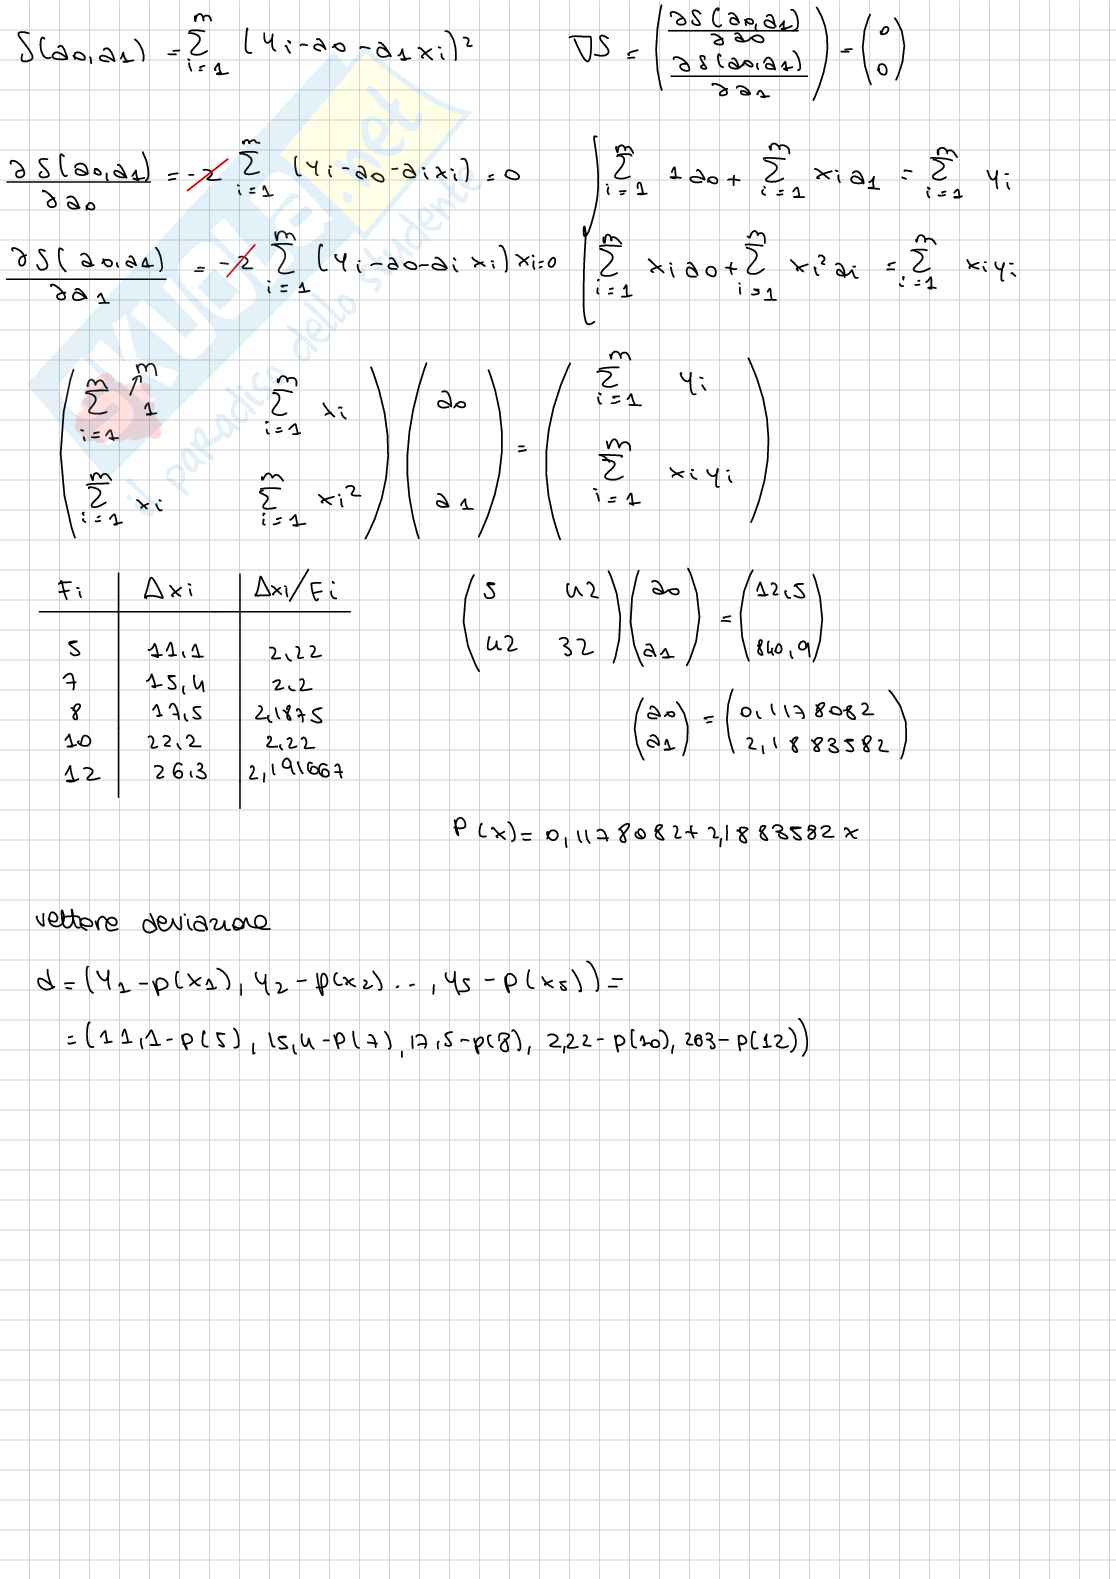 S(a0,a1) = Σ_{i=1}^{m} (yi-a0-a1xi)²    ∇S = (∂S(a0,a1)/∂a0 ; ∂S(a0,a1)/∂a1) = (0 ; 0)
∂S(a0,a1)/∂a0 = -2 Σ_{i=1}^{m} (yi-a0-aixi)=0    Σ_{i=1}^{m} 1a0+ Σ_{i=1}^{m} xia1 = Σ_{i=1}^{m} yi
∂S(a0,a1)/∂a1 = -2 Σ_{i=1}^{m} (yi-a0-ai xi)xi=0    Σ_{i=1}^{m} xia0+ Σ_{i=1}^{m} xi²ai = Σ_{i=1}^{m} xiyi
m
(Σ_{i=1}^{m} 1    Σ_{i=1}^{m} xi ; Σ_{i=1}^{m} xi    Σ_{i=1}^{m} xi²) (a0 ; a1) = (Σ_{i=1}^{m} yi ; Σ_{i=1}^{m} xiyi)
Fi    Δxi    Δxi/Fi
5    11,1    2,22
7    15,4    2,2
8    17,5    2,1875
10    22,2    2,22
12    26,3    2,191667
(5    42 ; 42    32) (a0 ; a1) = (12,5 ; 840,9)
(a0 ; a1) = (0,1178082 ; 2,1883582)
P(x)= 0,1178082+2,1883582x
vettore deviazione
d=(y1-p(x1), y2-p(x2)..., y5-p(x5))=
=(11,1-p(5), 15,4-p(7), 17,5-p(8), 2,22-p(10), 263-p(12))
SKUOLA.net
il paradiso dello studente